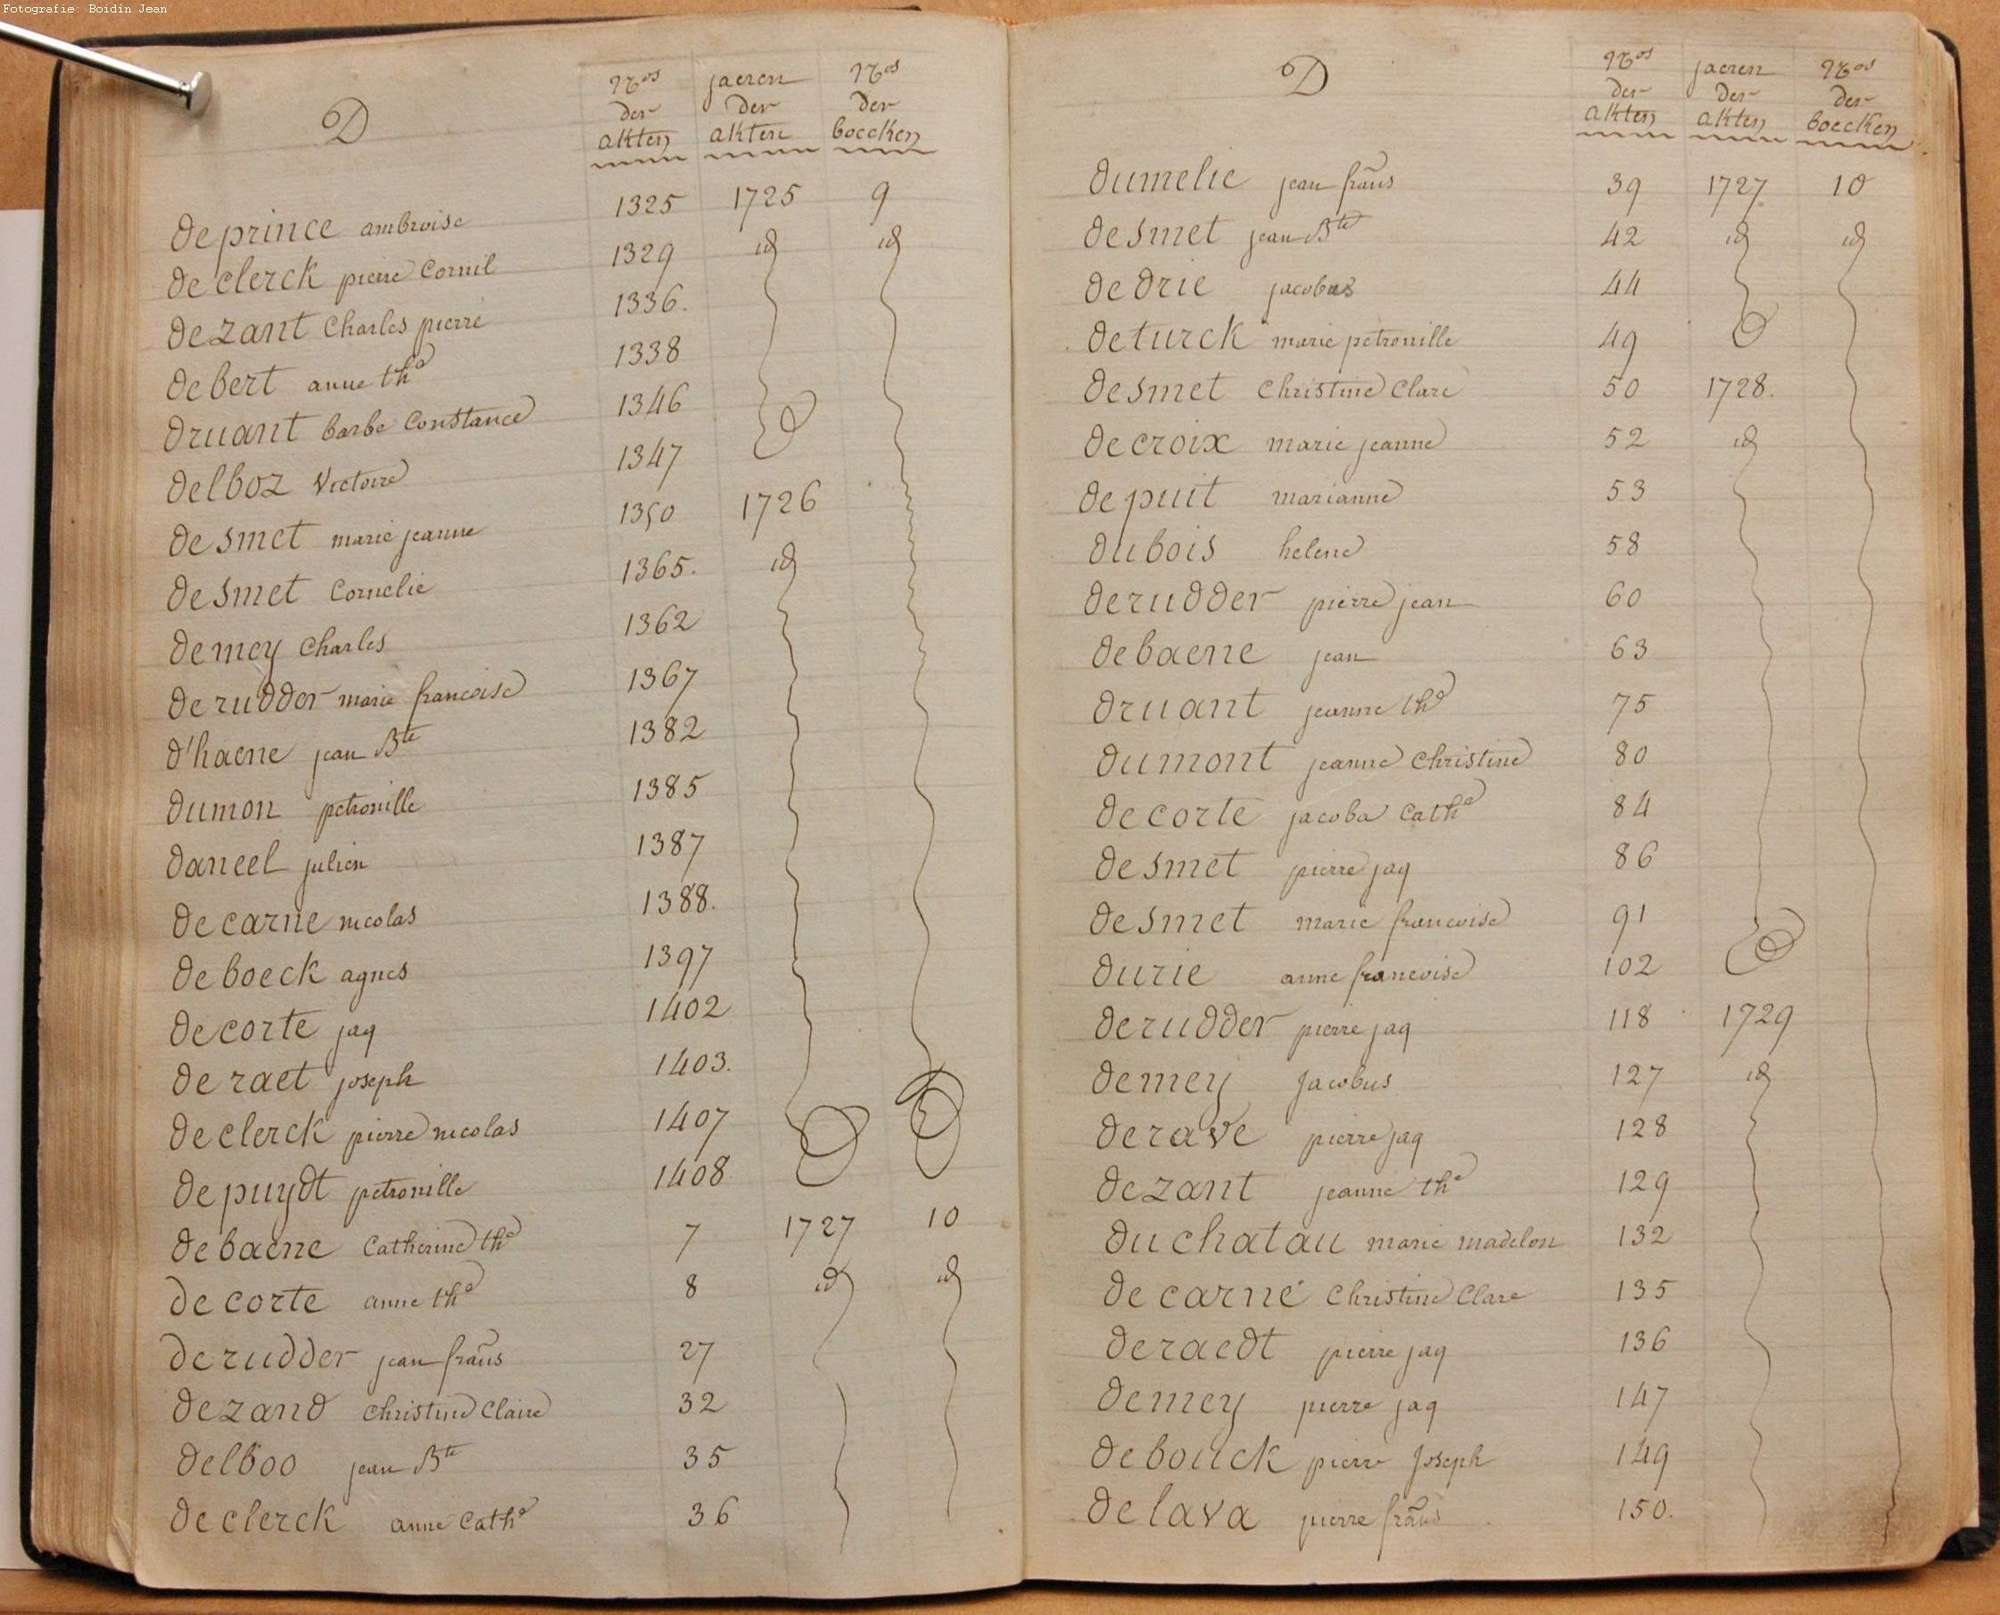 Fotografie: Boidin Jean
D
Nos der akten jaeren der akten Nos der boecken
de prince ambroise 1325 1725 9
de clerck pierre Cornil 1329 id id
de zant Charles pierre 1336.
de bert anne the 1338
druant barbe Constance 1346
delboz Victoire 1347
de smet marie jeanne 1350 1726
de smet Cornelie 1365. id
de mey Charles 1362
de rudder marie francoise 1367
d'haene jean Bte 1382
dumon petronille 1385
daneel julien 1387
de carne nicolas 1388.
de boeck agnes 1397
de corte jaq 1402
de raet joseph 1403.
de clerck pierre nicolas 1407
de puydt petronille 1408
de baene Catherine the 7 1727 10
de corte anne the 8 id id
de rudder jean frans 27
de zand Christine Claire 32
delboo jean Bte 35
de clerck anne Cathe 36
D
Nos der akten jaeren der akten Nos der boecken
dumelie jean frans 39 1727 10
de smet jean Bte 42 id id
de drie jacobus 44
de turck marie petronille 49
de smet Christine Clare 50 1728.
de croix marie jeanne 52 id
de puit marianne 53
dubois helene 58
de rudder pierre jean 60
de baene jean 63
druant jeanne the 75
dumont jeanne Christine 80
de corte jacoba Cathe 84
de smet pierre jaq 86
de smet marie francoise 91
durie anne francoise 102
de rudder pierre jaq 118 1729
de mey Jacobus 127 id
de rave pierre jaq 128
de zant jeanne the 129
du chatau marie madelon 132
de carné Christine Clare 135
de raedt pierre jaq 136
de mey pierre jaq 147
de bouck pierre Joseph 149
de lava pierre frans 150.